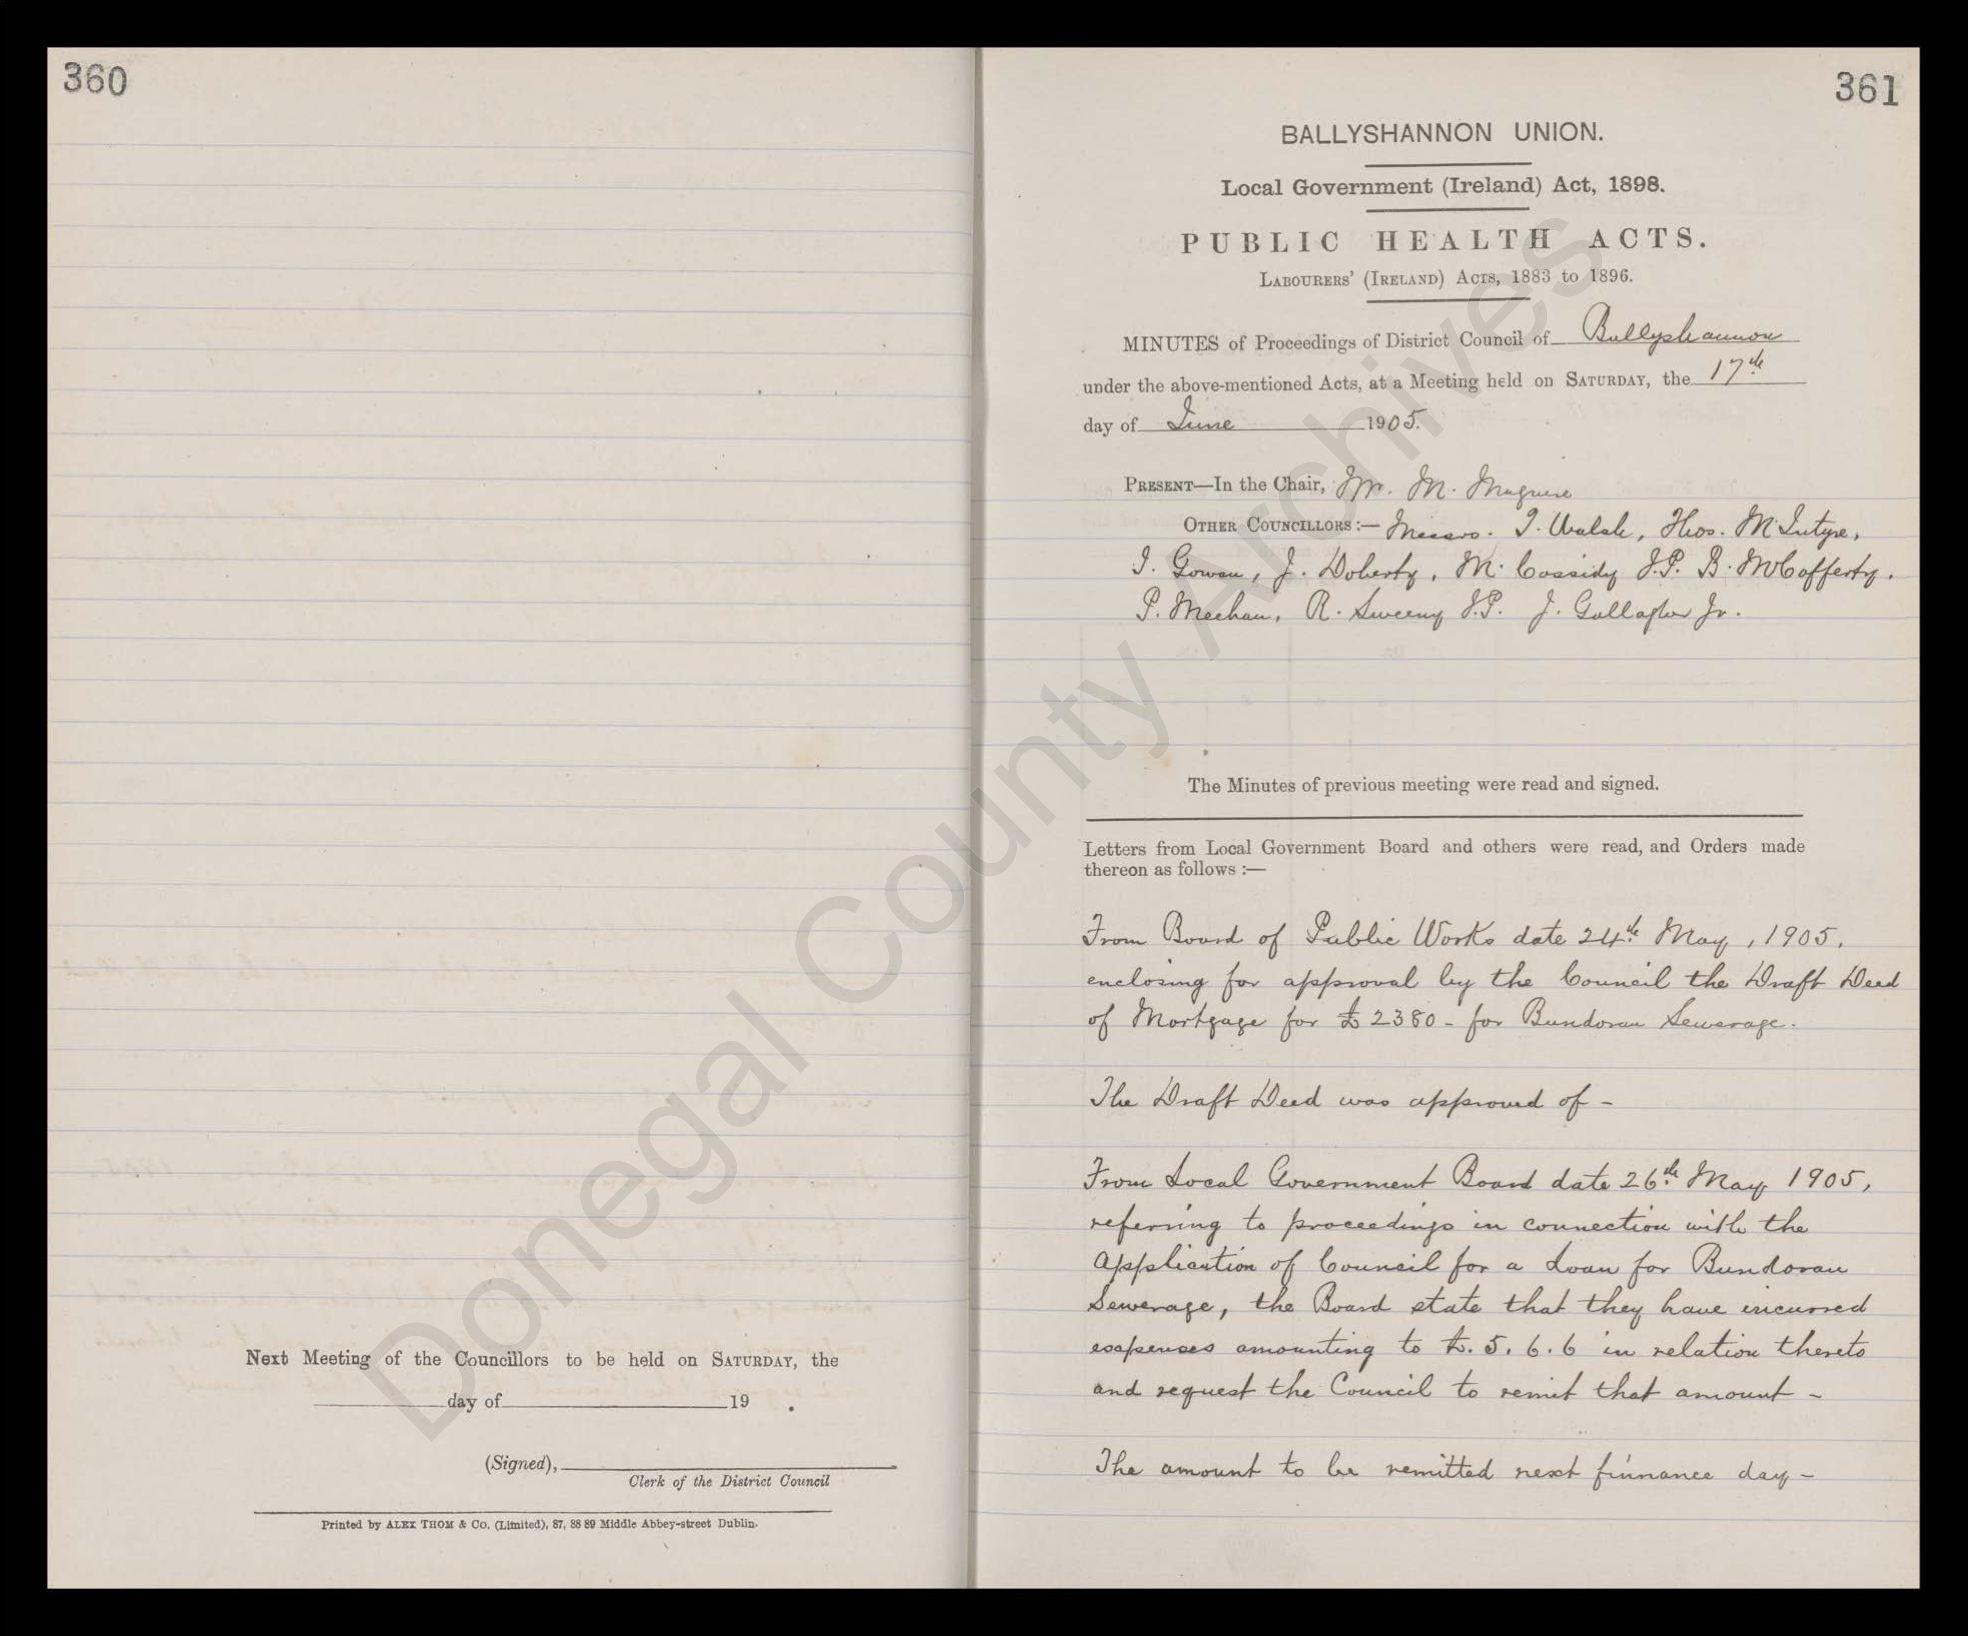 360
Next Meeting of the Councillors to be held on SATURDAY, the
day of 19 .
(Signed),
Clerk of the District Council
Printed by ALEX THOM & Co. (Limited), 87, 88 89 Middle Abbey-street Dublin.
361
BALLYSHANNON UNION.
Local Government (Ireland) Act, 1898.
PUBLIC HEALTH ACTS.
LABOURERS' (IRELAND) ACTS, 1883 to 1896.
MINUTES of Proceedings of District Council of Ballyshannon
under the above-mentioned Acts, at a Meeting held on SATURDAY, the 17th
day of June 1905.
PRESENT—In the Chair, Mr. M. Maguire
OTHER COUNCILLORS:— Messrs. T. Walsh, Thos. McIntyre,
I. Gowan, J. Doherty, M. Cassidy J.P. B. McCafferty.
P. Meehan, R. Sweeny J.P. J. Gallagher Jr.
The Minutes of previous meeting were read and signed.
Letters from Local Government Board and others were read, and Orders made
thereon as follows :—
From Board of Public Works date 24th May, 1905,
enclosing for approval by the Council the Draft Deed
of Mortgage for £2380 - for Bundoran Sewerage.
The Draft Deed was approved of -
From Local Government Board date 26th May 1905,
referring to proceedings in connection with the
Application of Council for a Loan for Bundoran
Sewerage, the Board state that they have incurred
expenses amounting to £. 5. 6. 6 in relation thereto
and request the Council to remit that amount -
The amount to be remitted next finnance day -
Donegal County Archives